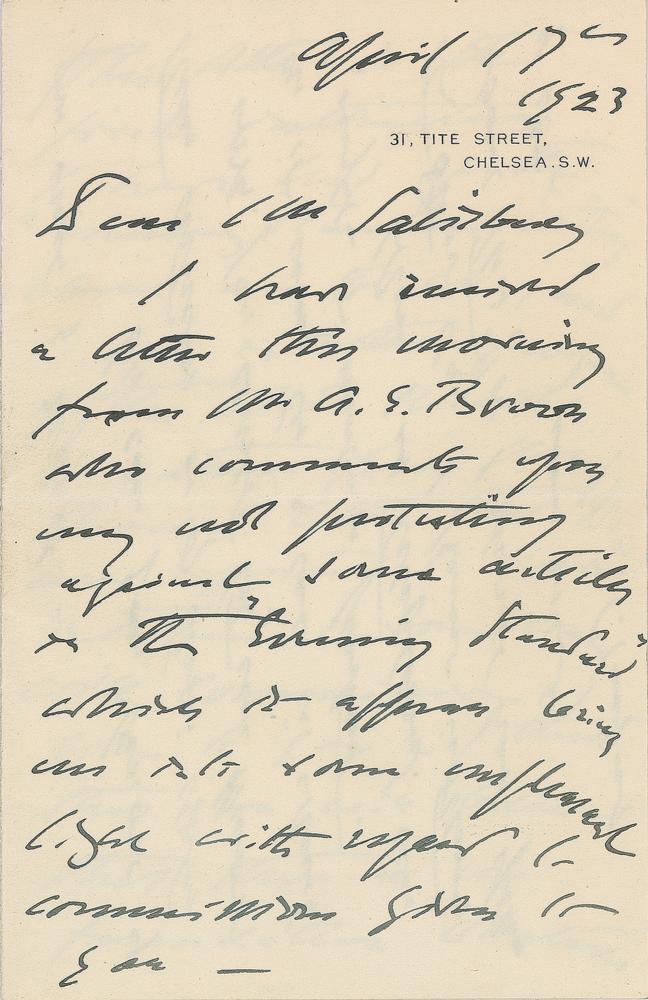 April 17th
1923
31, TITE STREET,
CHELSEA. S.W.
Dear Mr Salisbury
I have received
a letter this morning
from Mr A. E. Brown
who comments upon
my not protesting
against some articles
in The "Evening Standard"
which it appears bring
me into some unpleasant
light with regard to
commissions given to
you —